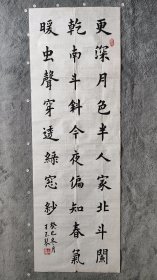 更深月色半人家北斗闌
乾南斗斜今夜偏知春氣
暖虫聲穿透綠窓紗
癸巳冬月